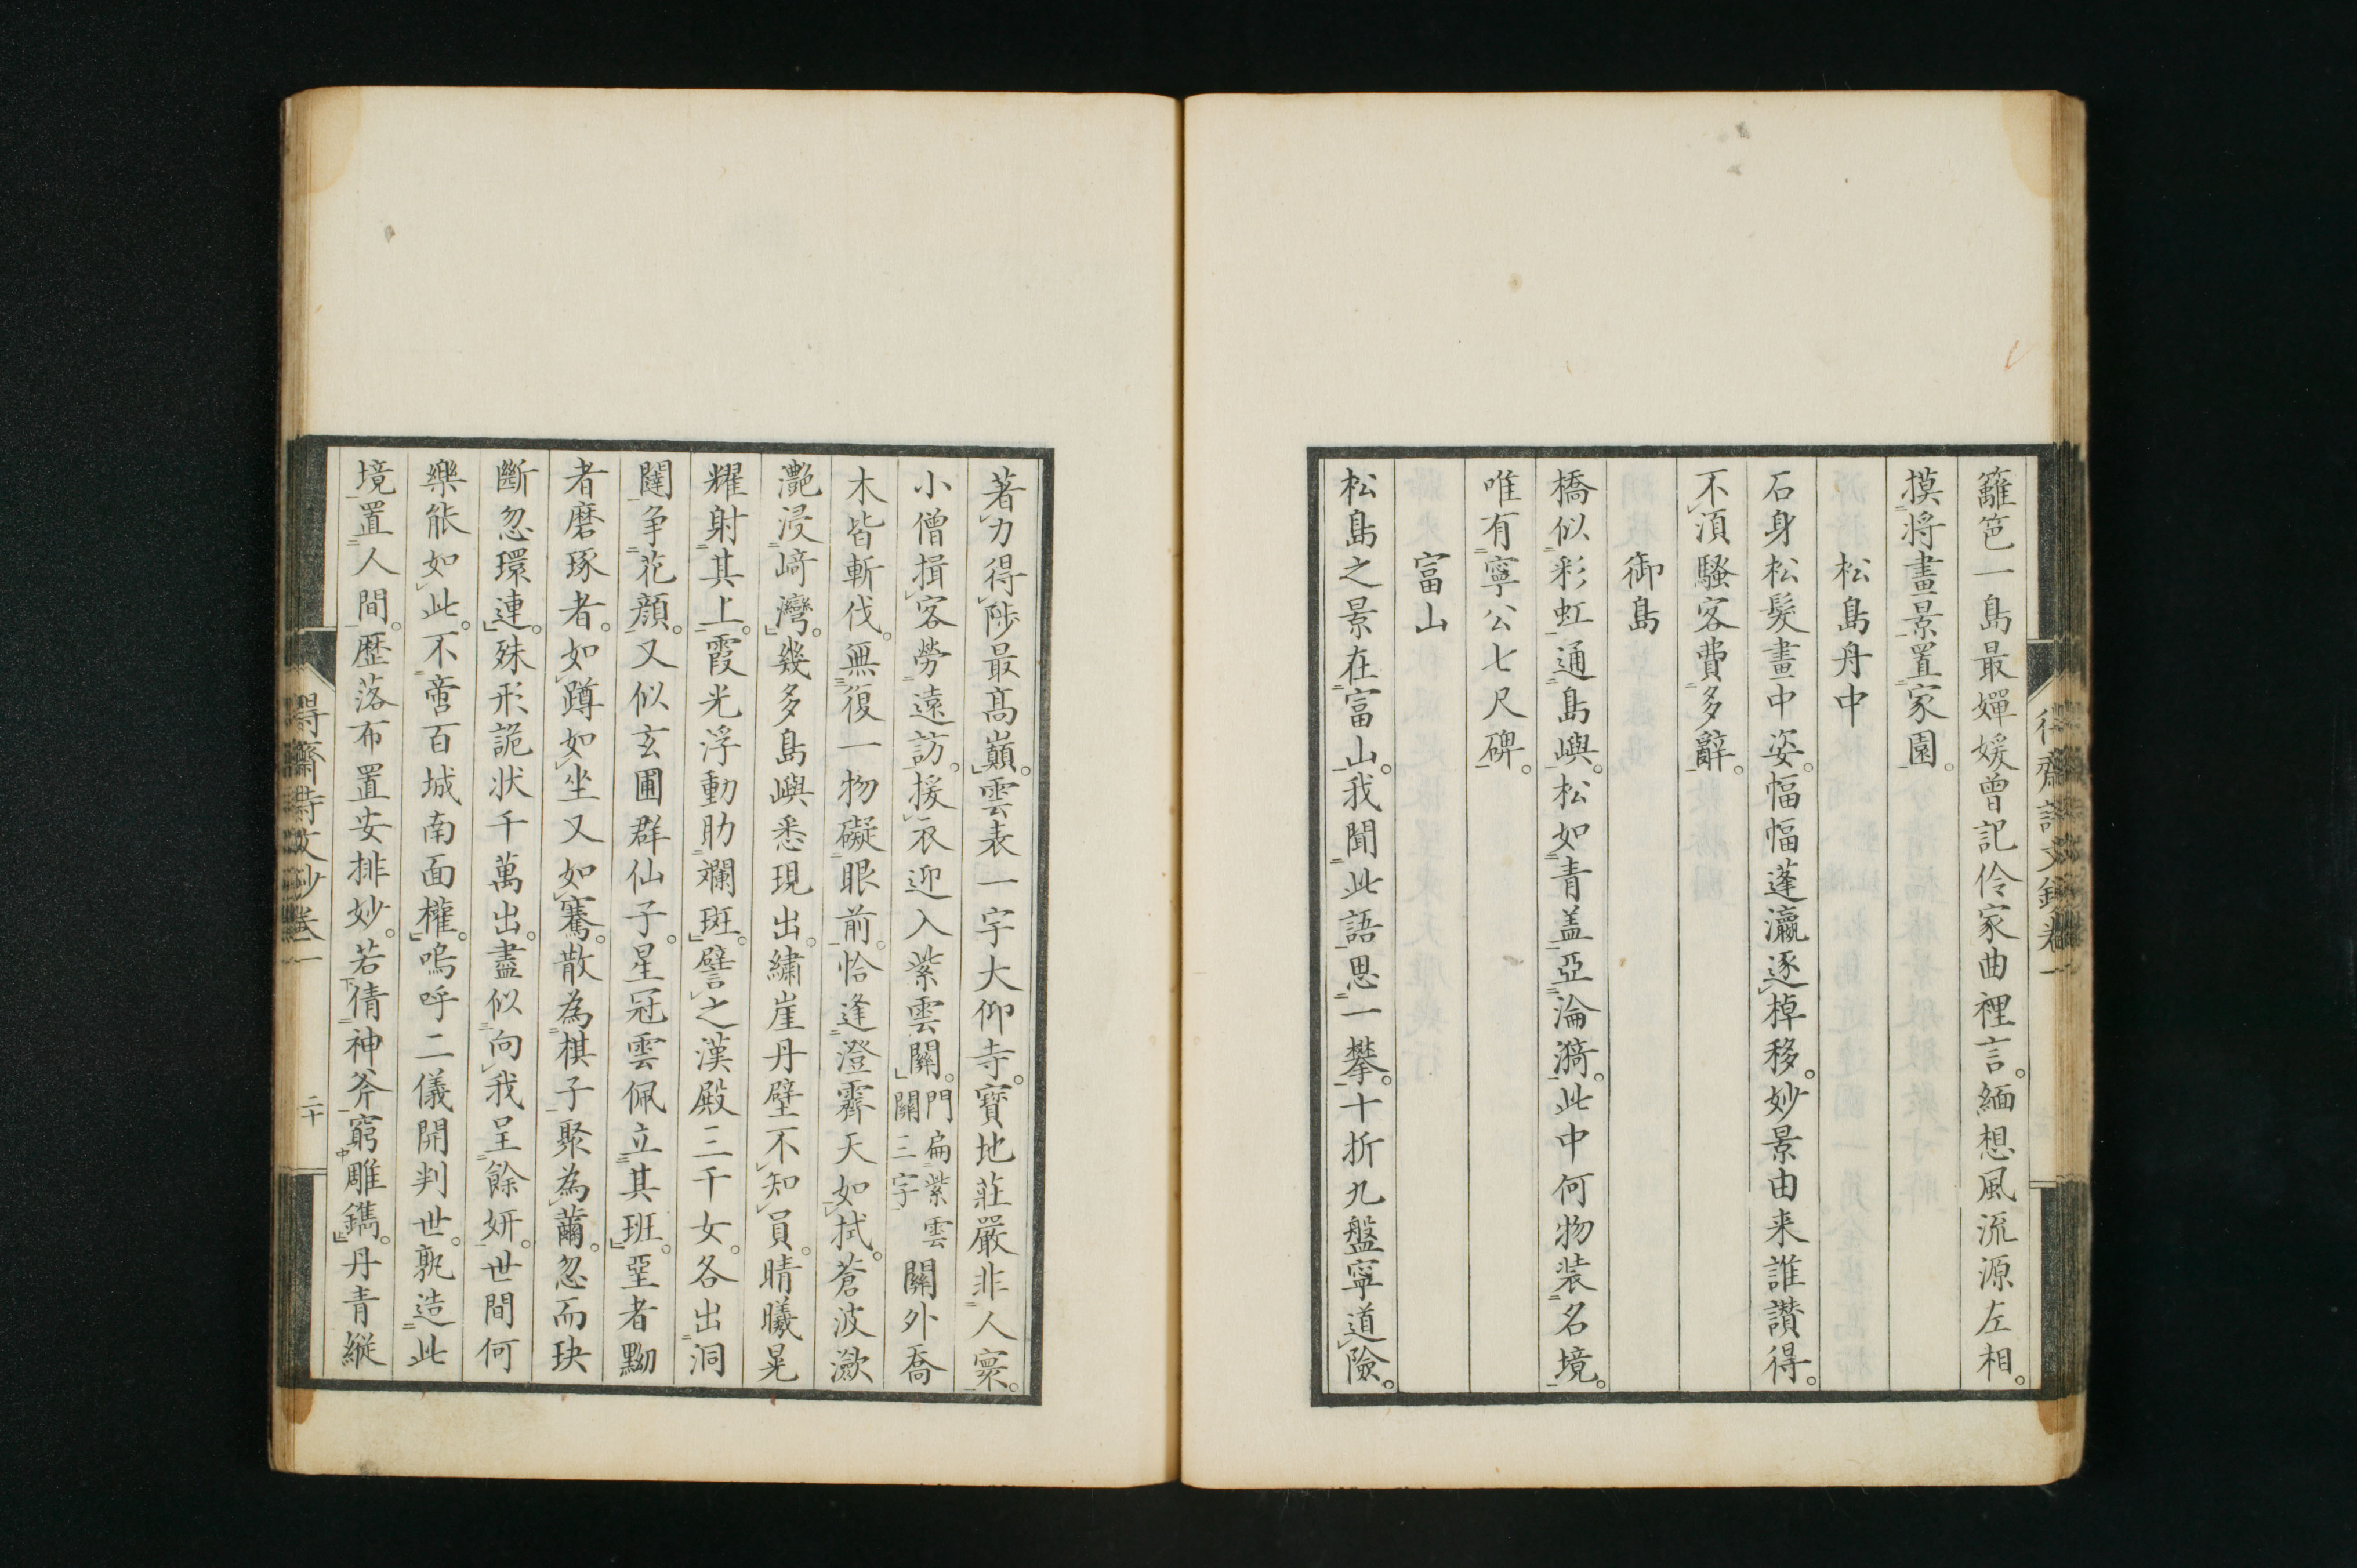 籬笆一島最嬋媛曾記伶家曲裡言。緬想風流源左相。
摸将畫景置家園。
松島舟中
石身松髮畫中姿。幅幅蓬瀛逐棹移。妙景由来誰讃得。
不須騷客費多辭。
御島
橋似彩虹通島嶼。松如青盖亞淪漪。此中何物装名境。
唯有寧公七尺碑。
富山
松島之景在富山。我聞此語思一攀。十折九盤寧道險。
著力得陟最高巔。雲表一宇大仰寺。寳地莊嚴非人寰。
小僧揖客勞遠訪。援衣迎入紫雲關。門扁紫雲關三字關外喬
木皆斬伐。無復一物礙眼前。恰逢澄霽天如拭。蒼波瀲
灔浸﨑灣。幾多島嶼悉現出。繡崖丹壁不知員。晴曦晃
耀射其上。霞光浮動助斕斑。譬之漢殿三千女。各出洞
闥争花顔。又似玄圃群仙子。星冠雲佩立其班。堊者黝
者磨琢者。如蹲如坐又如騫。散為棋子聚為繭。忽而玦
斷忽環連。殊形詭状千萬出。盡似向我呈餘妍。世間何
樂能如此。不啻百城南面權。嗚呼二儀開判世。孰造此
境置人間。歷落布置安排妙。若倩神斧窮雕鐫。丹青縱
得齋詩文鈔卷一
二十